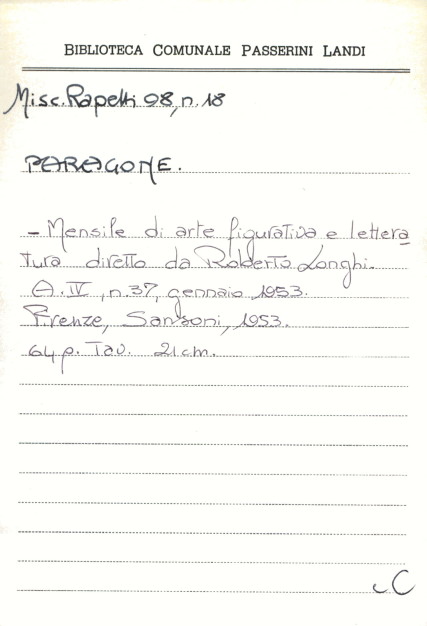 BIBLIOTECA COMUNALE PASSERINI LANDI
Misc. Rapetti 98, n. 18
PARAGONE.
- Mensile di arte figurativa e lettera
tura diretto da Roberto Longhi.
A. IV, n. 37, gennaio 1953.
Firenze, Sansoni, 1953.
64 p. Tav. 21 cm.